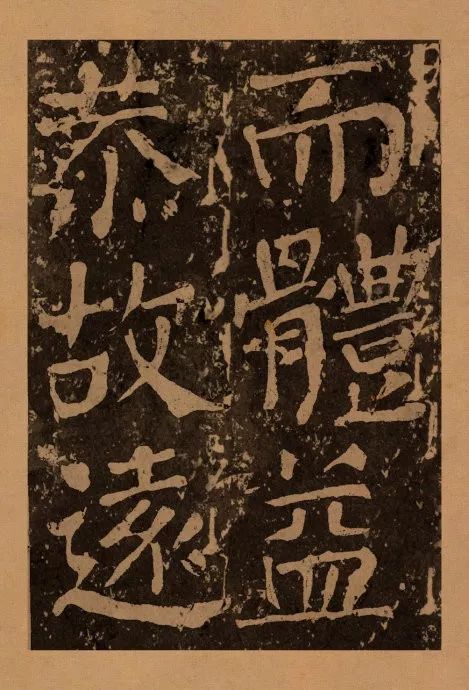 而體益
恭故遠